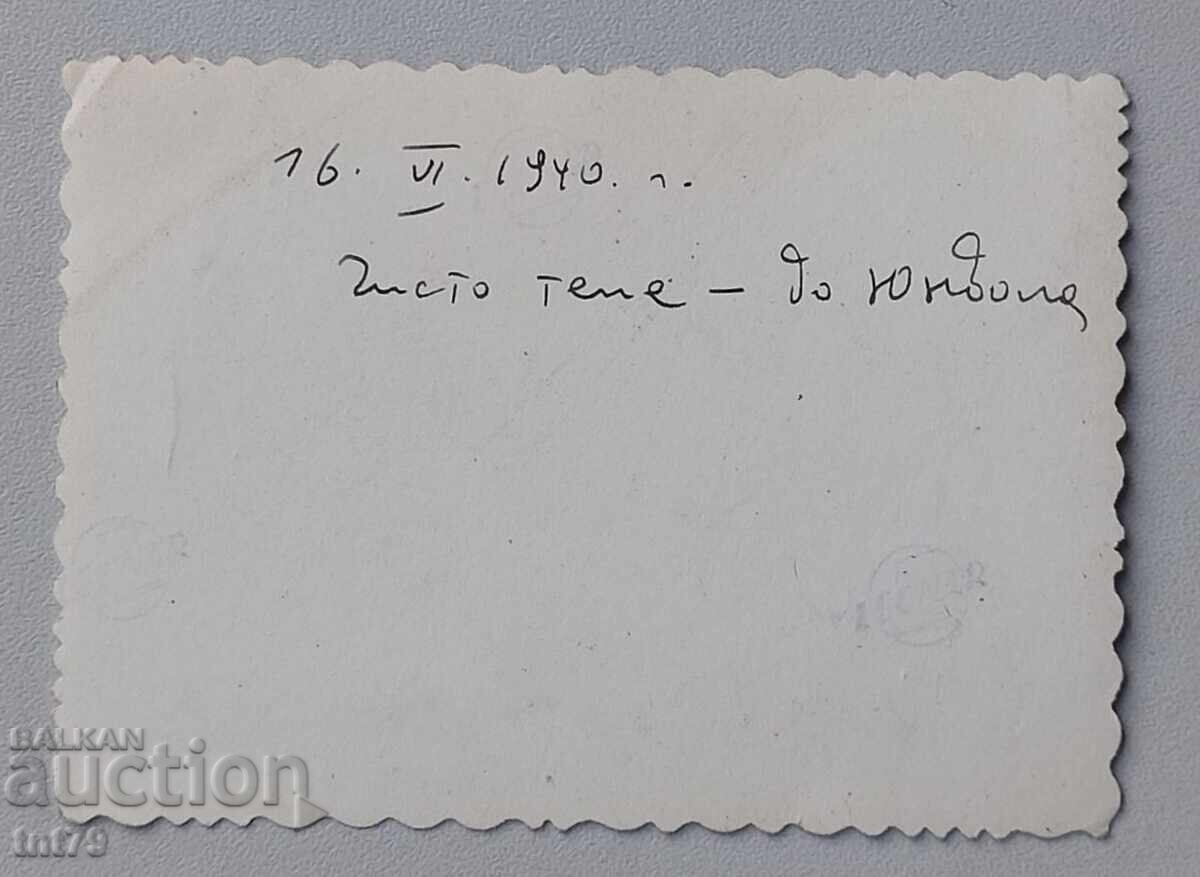 16. VI. 1940. г.
Чисто тепе – до Юндола
BALKAN
auction
tnt79